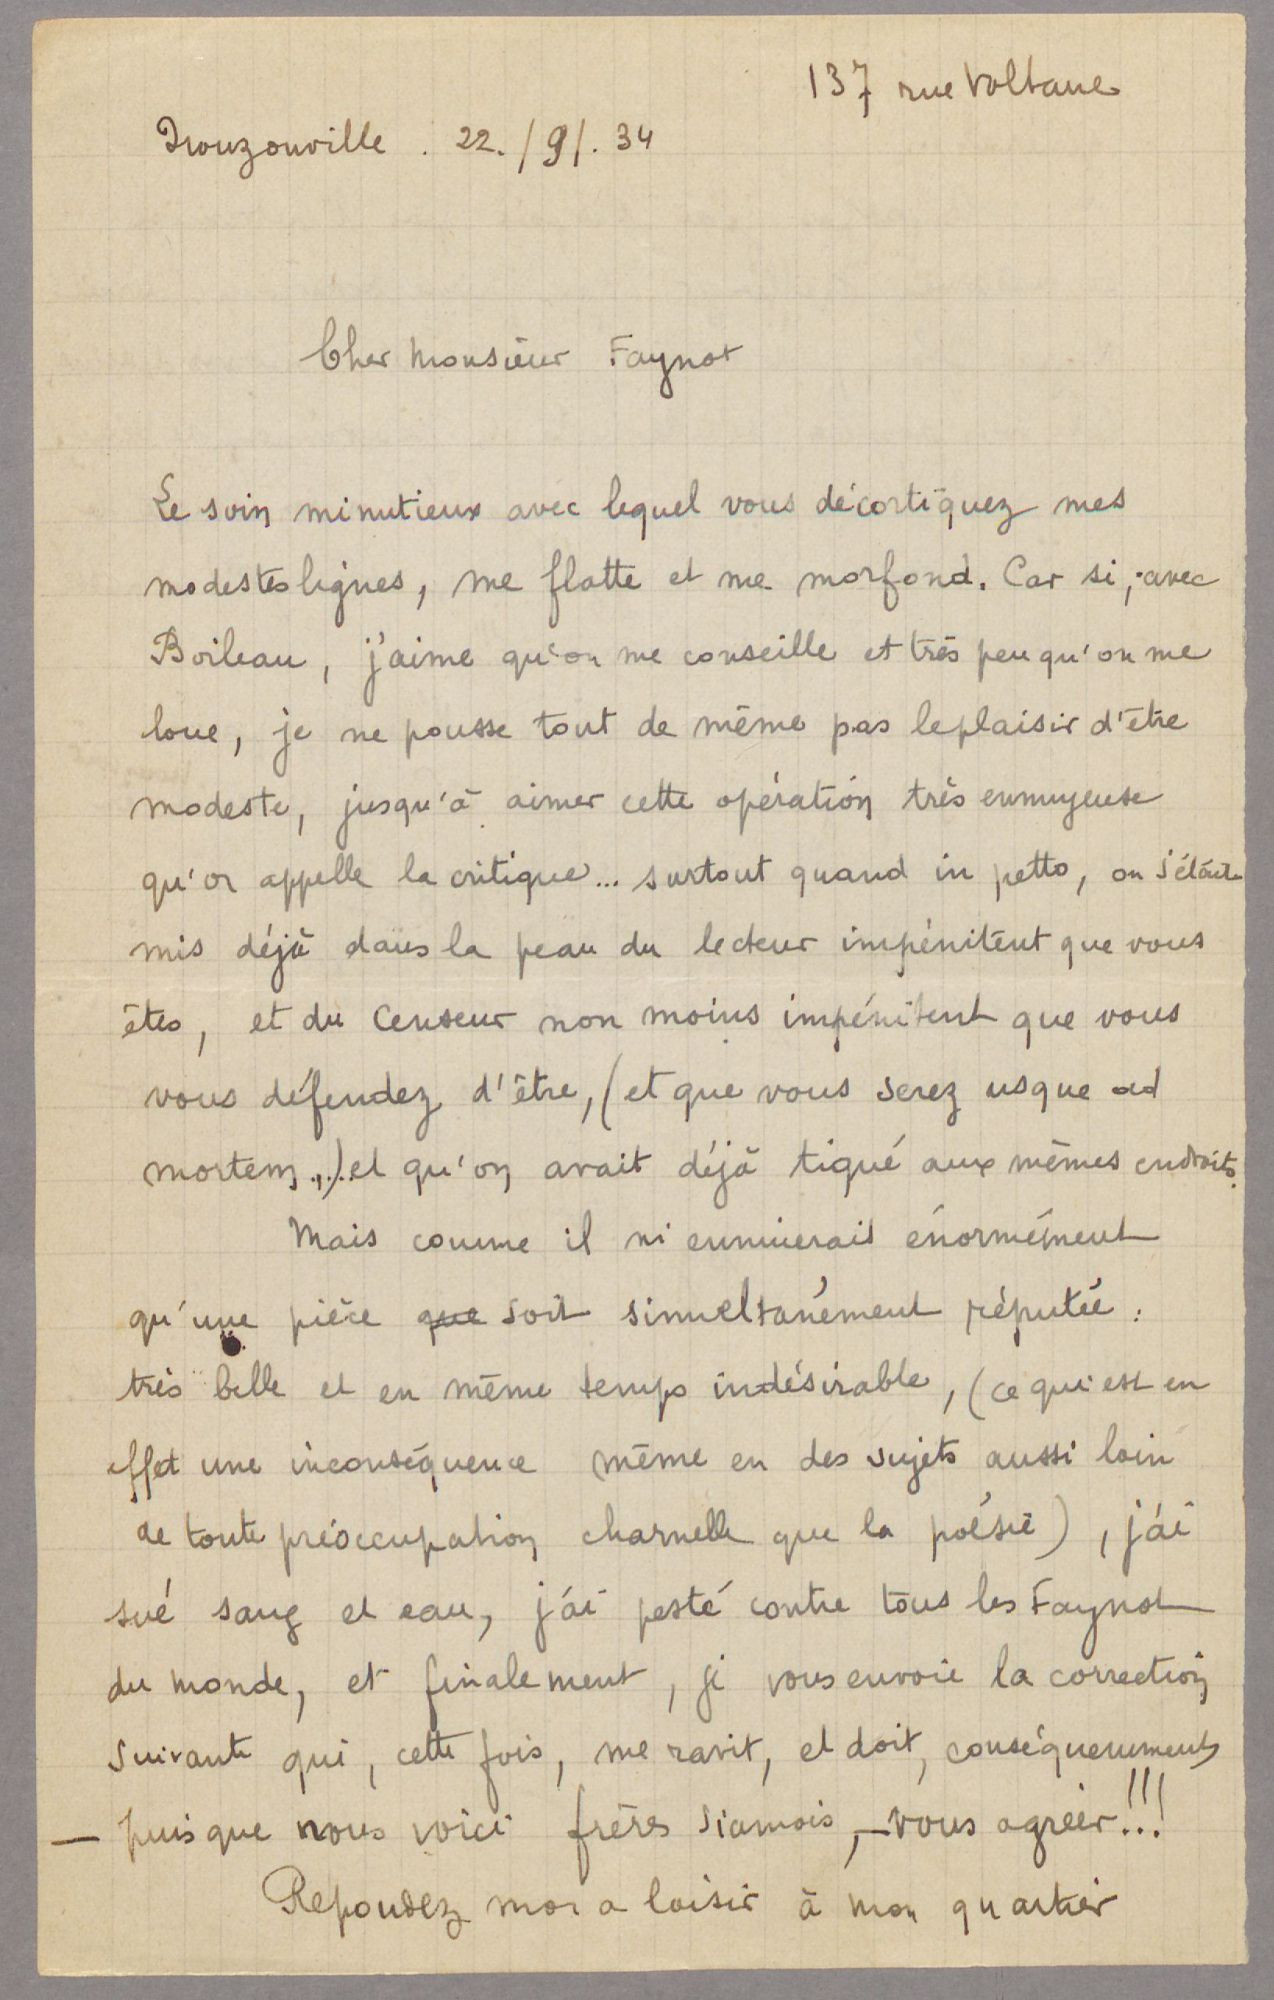 137 rue Voltaire
Nouzonville. 22./9/.34
Cher Monsieur Faynot
Le soin minutieux avec lequel vous décortiquez mes
modestes lignes, me flatte et me morfond. Car si, avec
Boileau, j'aime qu'on me conseille et très peu qu'on me
loue, je ne pousse tout de même pas le plaisir d'être
modeste, jusqu'à aimer cette opération très ennuyeuse
qu'on appelle la critique... surtout quand in petto, on s'était
mis déjà dans la peau du lecteur impénitent que vous
êtes, et du censeur non moins impénitent que vous
vous défendez d'être, (et que vous serez usque ad
mortem...) et qu'on avait déjà tiqué aux mêmes endroits.
Mais comme il m'ennuierait énormément
qu'une pièce que soit simultanément réputée :
très belle et en même temps indésirable, (ce qui est en
effet une inconséquence même en des sujets aussi loin
de toute préoccupation charnelle que la poésie), j'ai
sué sang et eau, j'ai pesté contre tous les Faynot
du monde, et finalement, je vous envoie la correction
suivante qui, cette fois, me ravit, et doit, conséquemment
— puisque nous voici frères siamois, — vous agréer!!!
Repondez moi a loisir à mon quartier